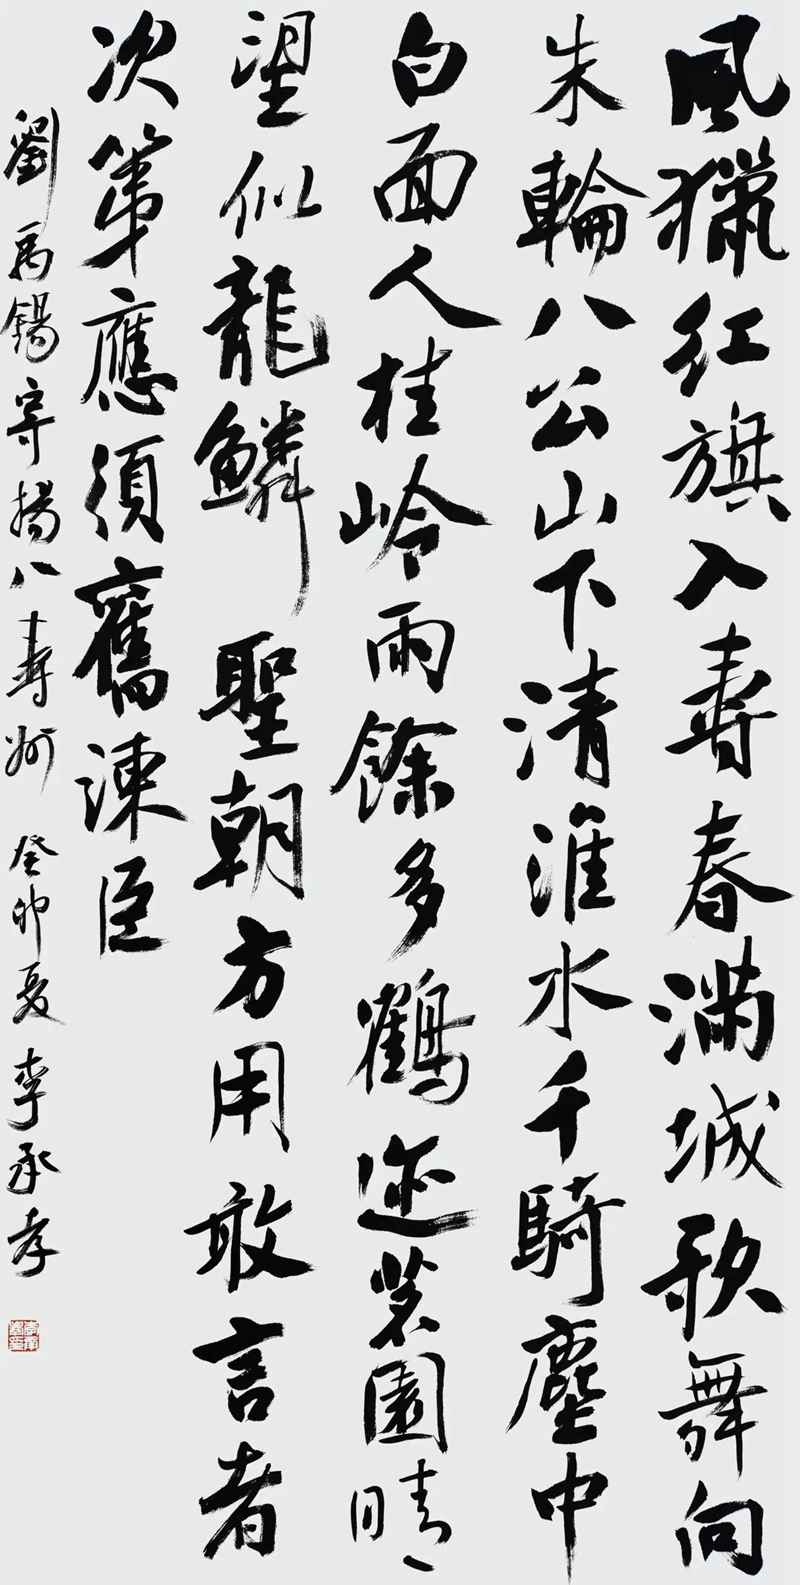 風獵紅旗入壽春滿城歌舞向
朱輪八公山下清淮水千騎塵中
白面人桂岭雨餘多鶴迹茗園晴
望似龍鱗聖朝方用敢言者
次第應須舊諫臣
劉禹錫寄楊八壽州 癸卯夏 李承孝